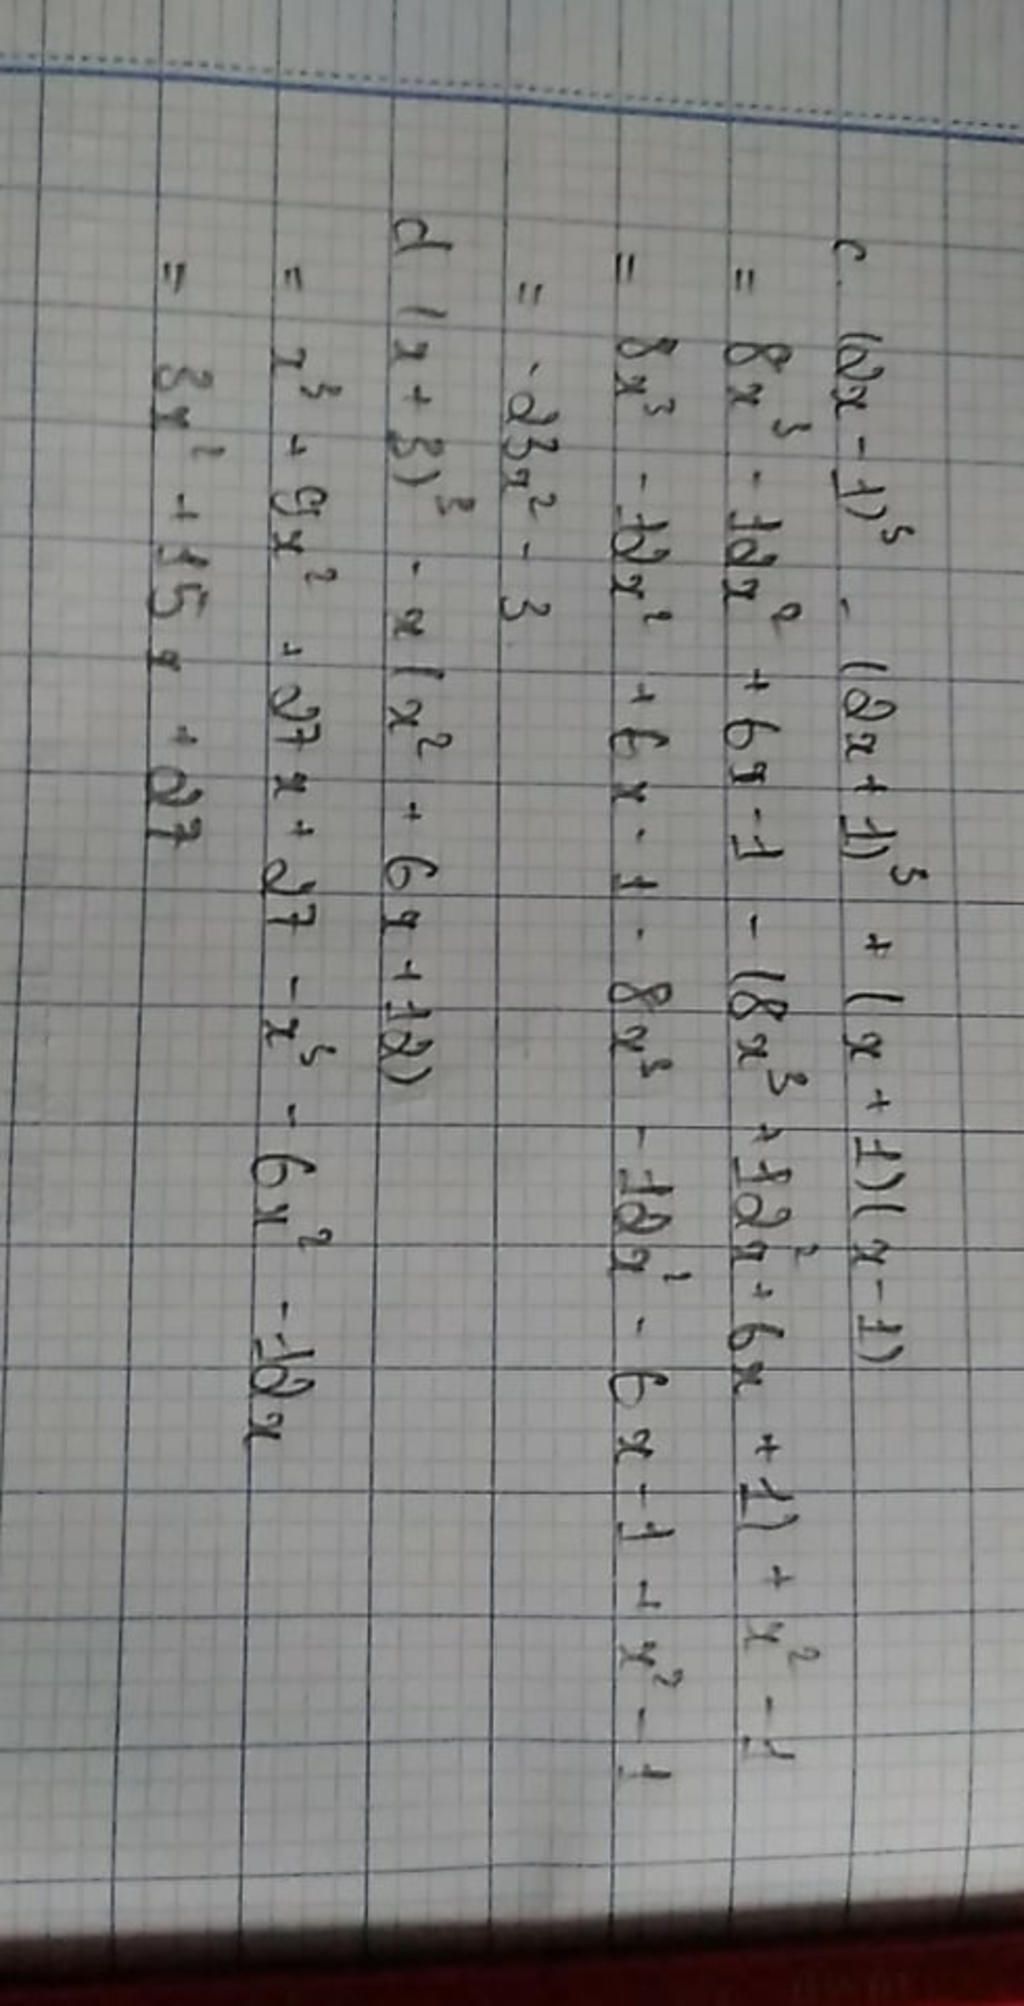 c. (2x - 1)³ - (2x + 1)³ + (x + 1)(x - 1)
= 8x³ - 12x² + 6x - 1 - (8x³ + 12x² + 6x + 1) + x² - 1
= 8x³ - 12x² + 6x - 1 - 8x³ - 12x² - 6x - 1 + x² - 1
= -23x² - 3
d (x + 3)³ - x(x² + 6x + 12)
= x³ + 9x² + 27x + 27 - x³ - 6x² - 12x
= 3x² + 15x + 27